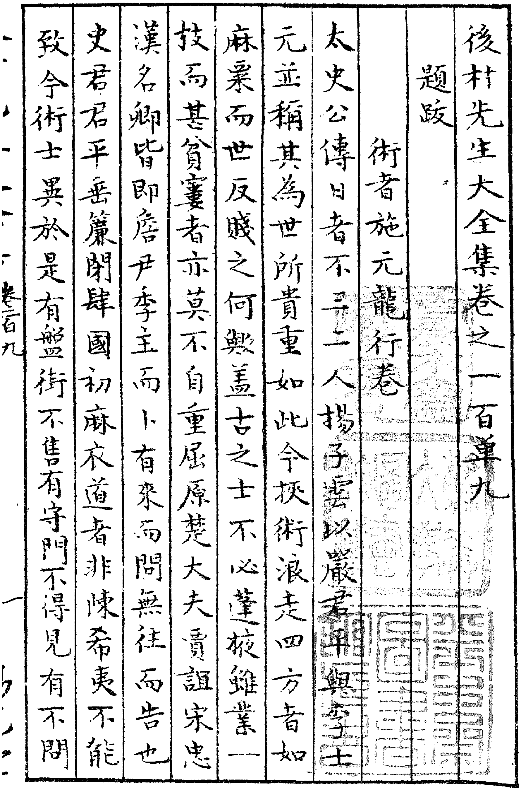 後村先生大全集卷之一百單九
題跋
術者施元龍行卷
太史公傳日者不三二人揚子雲以嚴君平與李士
元並稱其為世所貴重如此今挾術浪走四方者如
麻粟而世反賤之何歟盖古之士不必蓬掖雖業一
技而甚貧窶者亦莫不自重屈原楚大夫賈誼宋忠
漢名卿皆即詹尹季主而卜有來而問無往而告也
史君君平垂簾閉肆國初麻衣道者非陳希夷不能
致今術士異於是有盤街不售有守門不得見有不問
卷百九